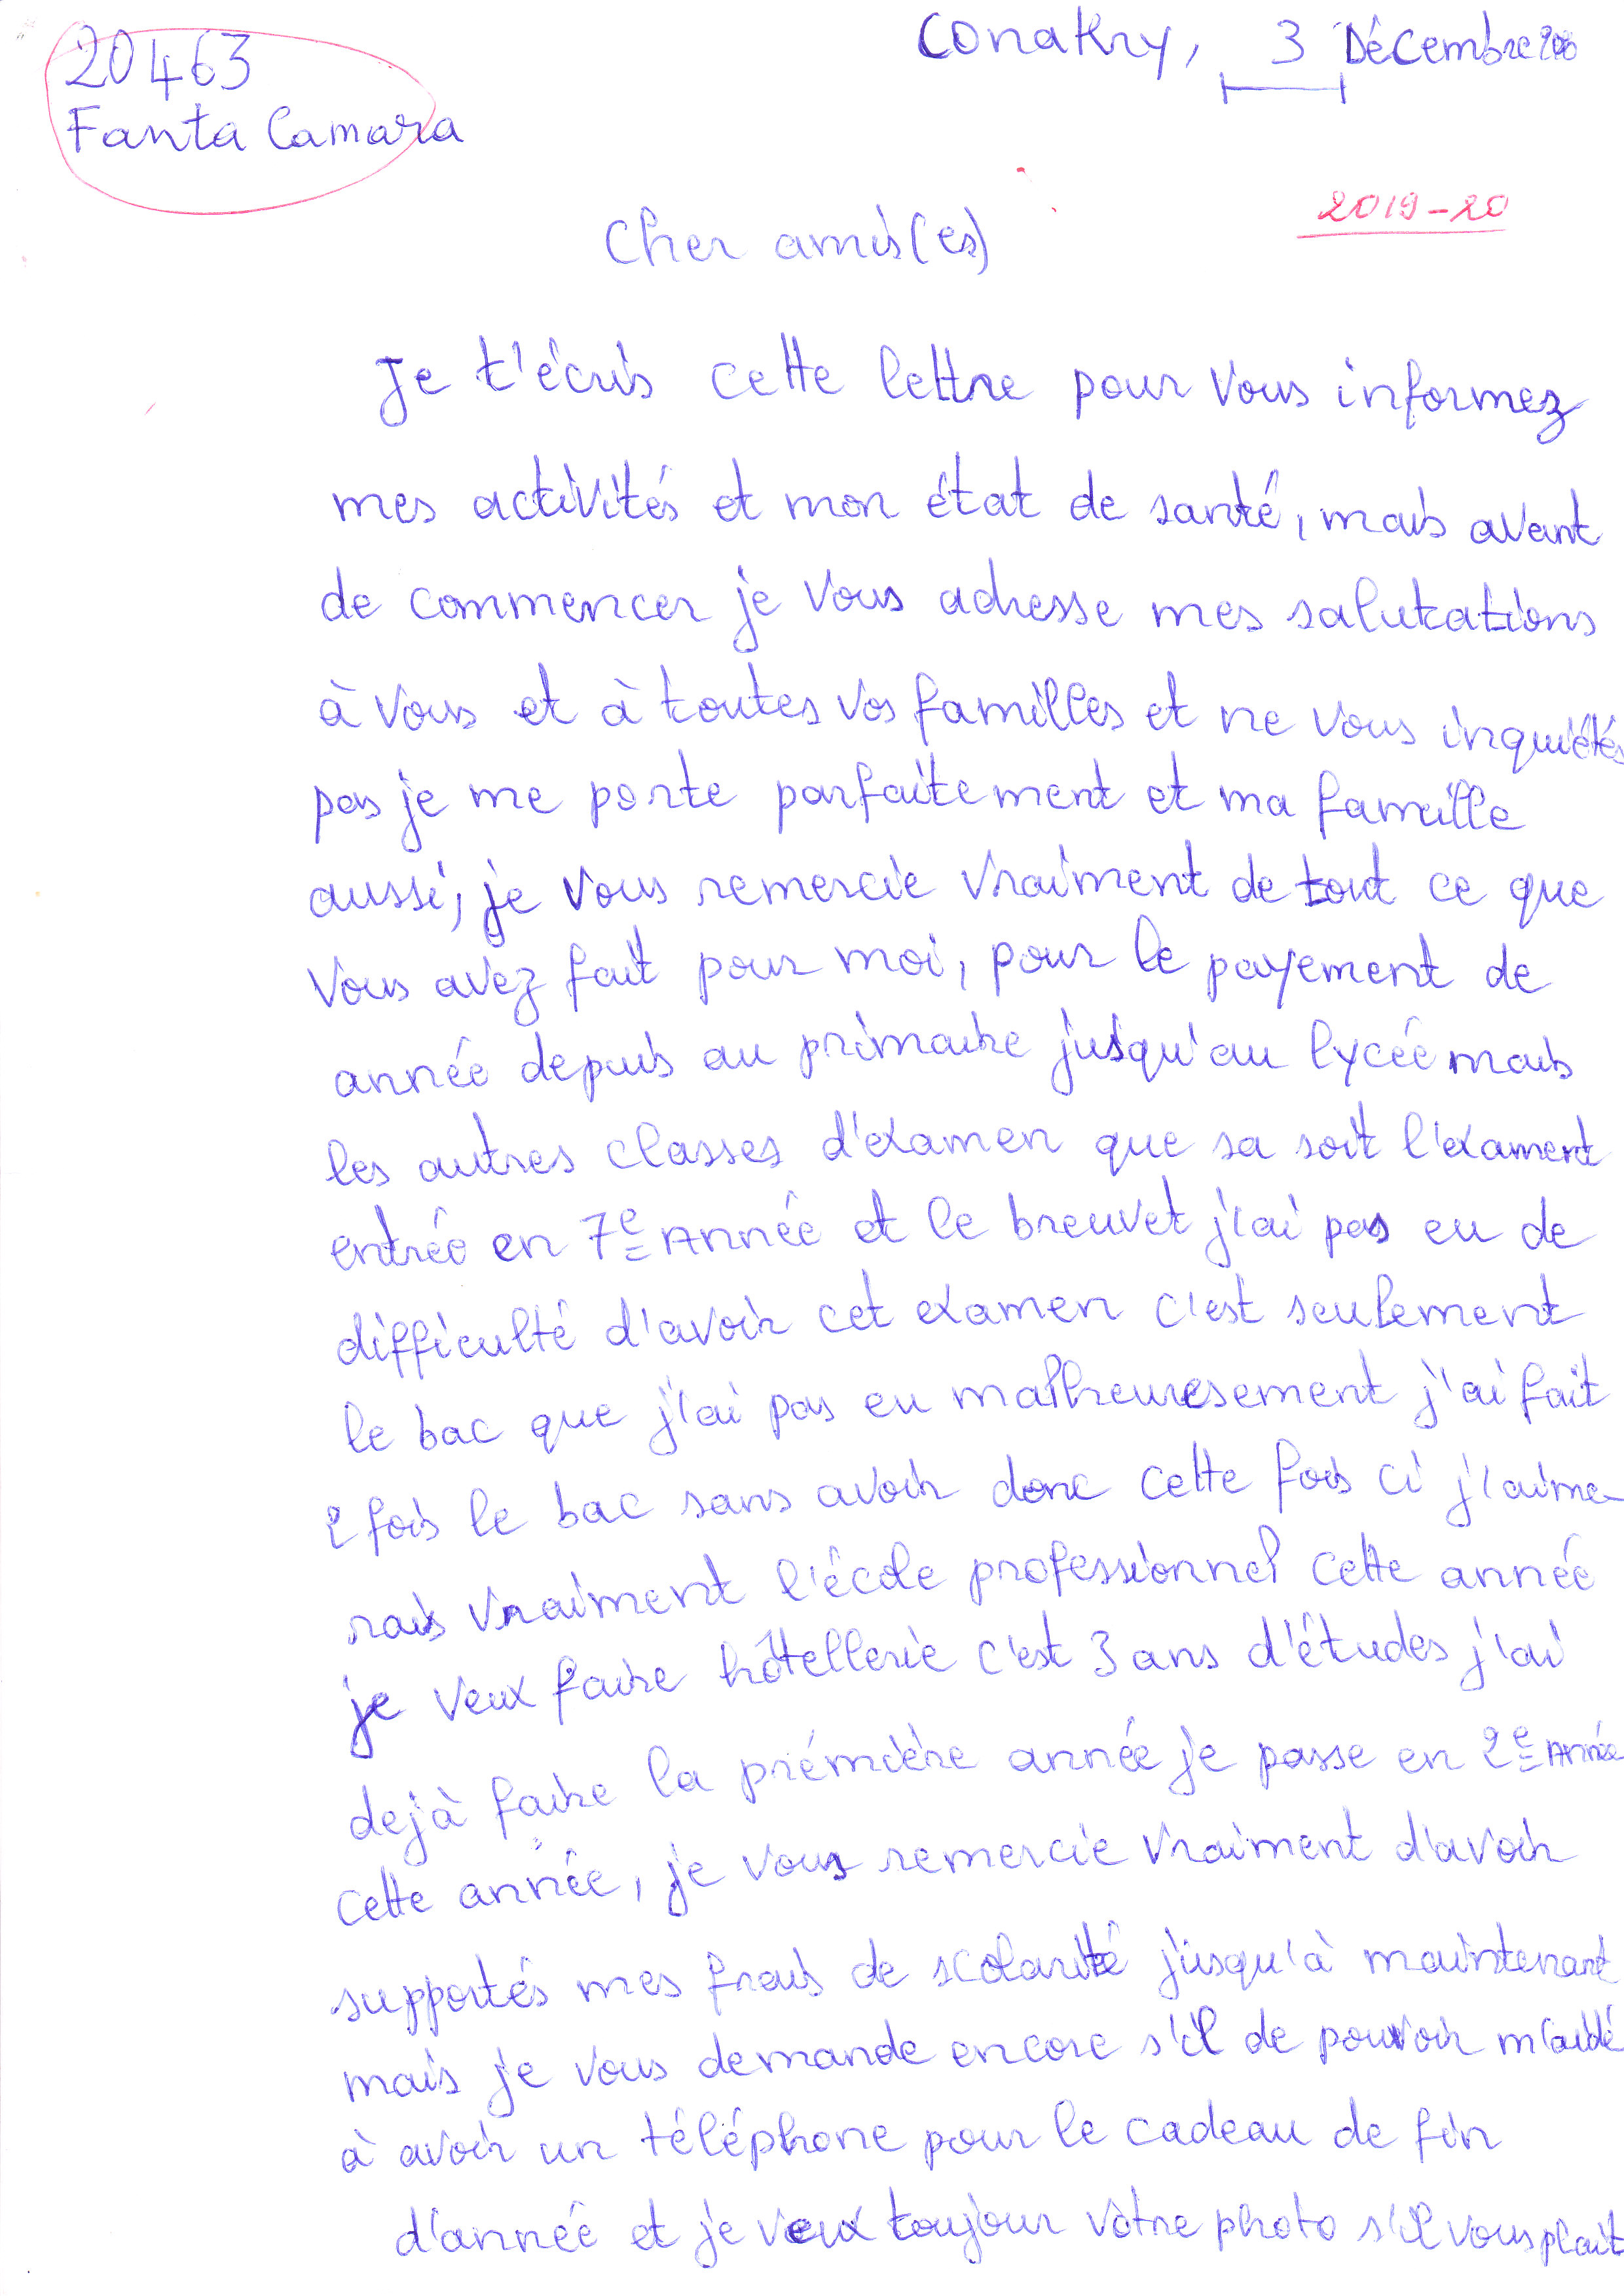 20463
Fanta Camara
Conakry, 3 Décembre
2019-20
Cher amis(es)
Je t'écris cette lettre pour vous informez
mes activités et mon état de santé, mais avant
de commencer je vous adresse mes salutations
à vous et à toutes vos familles et ne vous inquiétés
pas je me porte parfaitement et ma famille
aussi, je vous remercie vraiment de tout ce que
vous avez fait pour moi, pour le payement de
année depuis au primaire jusqu'au lycée mais
les autres classes d'examen que sa soit l'exament
entrée en 7e Année et le breuvet j'ai pas eu de
difficulté d'avoir cet examen c'est seulement
le bac que j'ai pas eu malheuresement j'ai fait
2 fois le bac sans avoir donc cette fois ci j'aime-
rais vraiment l'école professionnel cette année
je veux faire hôtellerie c'est 3 ans d'études j'ai
dejà faire la prémière année je passe en 2e Année
cette année, je vous remercie vraiment d'avoir
supportés mes frais de scolarité jusqu'à maintenant
mais je vous demande encore s'il de pouvoir m'aidé
à avoir un téléphone pour le cadeau de fin
d'année et je veux toujour vôtre photo s'il vous plait